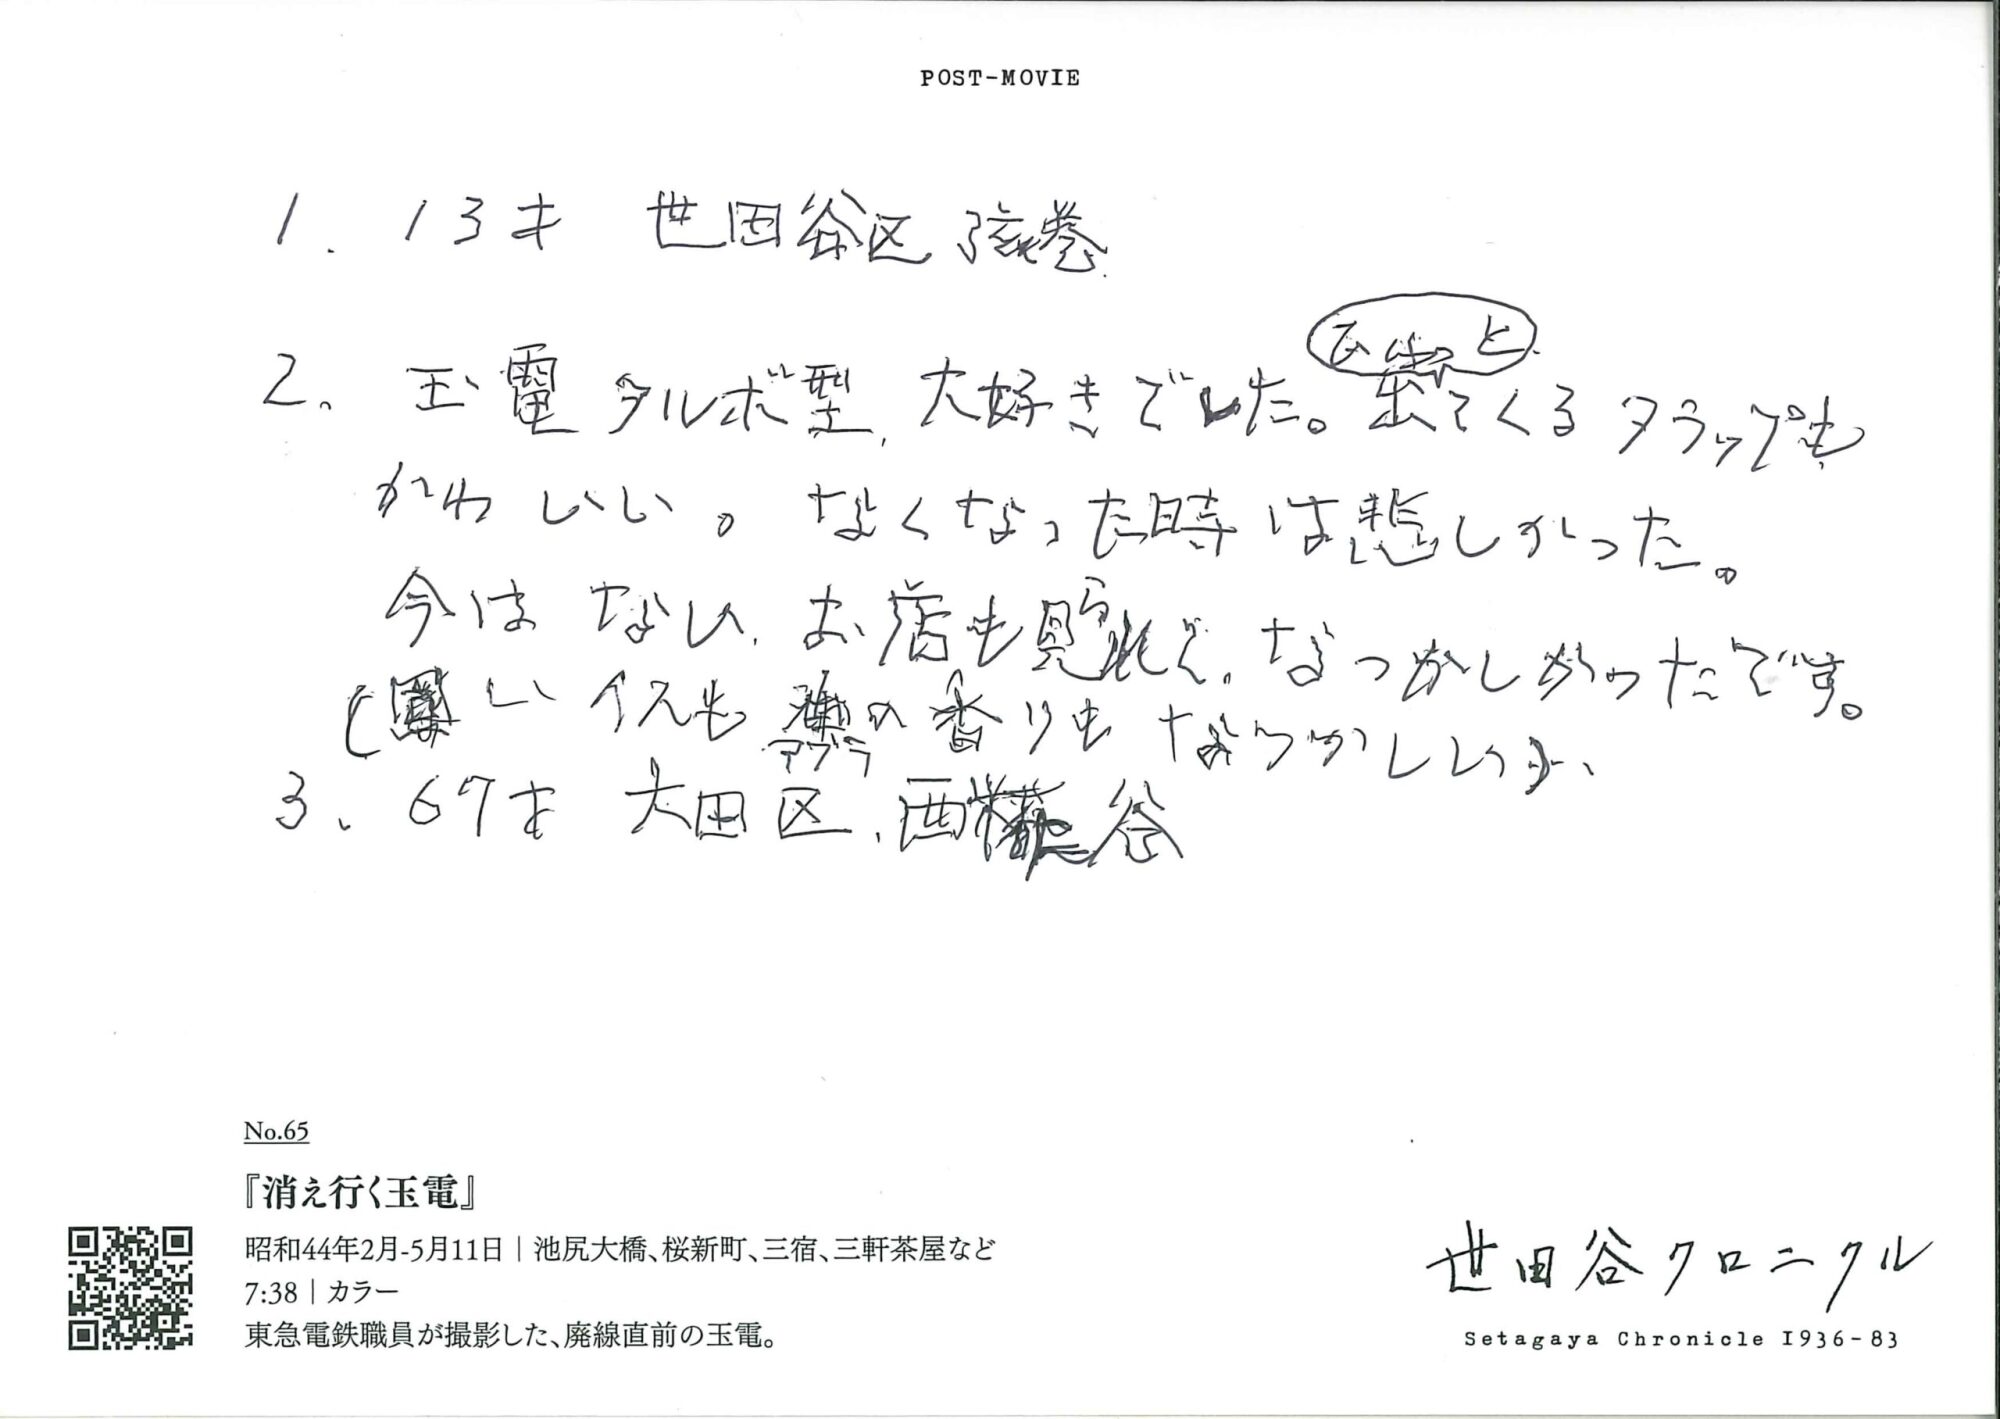 POST-MOVIE
1. 13才 世田谷区 弦巻
2. 玉電 タルボ型、大好きでした。出てくるタラップも
かわいい。なくなった時は悲しかった。
今はない、お店も見られて、なつかしかったです。
しいイスも の香りもなつかしい
アブラ
3、67才 大田区、西 谷
No.65
『消え行く玉電』
昭和44年2月-5月11日｜池尻大橋、桜新町、三宿、三軒茶屋など
7:38｜カラー
東急電鉄職員が撮影した、廃線直前の玉電。
世田谷クロニクル
Setagaya Chronicle 1936-83